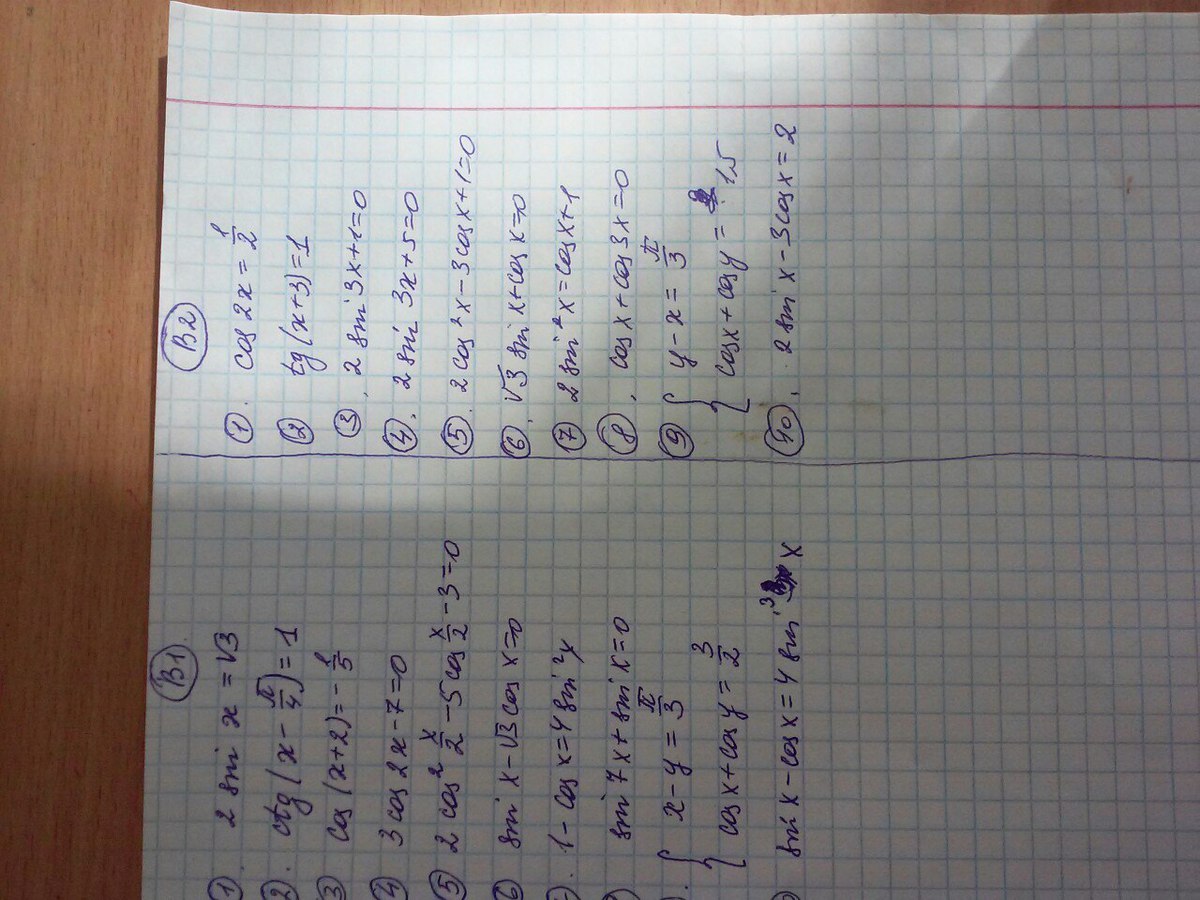 В1
1. 2 sin x = √3
2. ctg(x - π/4) = 1
3 cos(x+2) = -1/3
4 3 cos 2x - 7 = 0
5 2 cos² x/2 - 5 cos x/2 - 3 = 0
6 sin x - √3 cos x = 0
1 - cos x = 4 sin² x
sin 7x + sin x = 0
{ x - y = π/3
cos x + cos y = 3/2
sin x - cos x = 4 sin³ x
В2
1. cos 2x = 1/2
2 tg(x+3) = 1
3. 2 sin 3x + 1 = 0
4. 2 sin 3x + 5 = 0
5. 2 cos² x - 3 cos x + 1 = 0
6. √3 sin x + cos x = 0
7 2 sin² x = cos x + 1
8. cos x + cos 3x = 0
9 { y - x = π/3
cos x + cos y = 1,5
10. 2 sin x - 3 cos x = 2